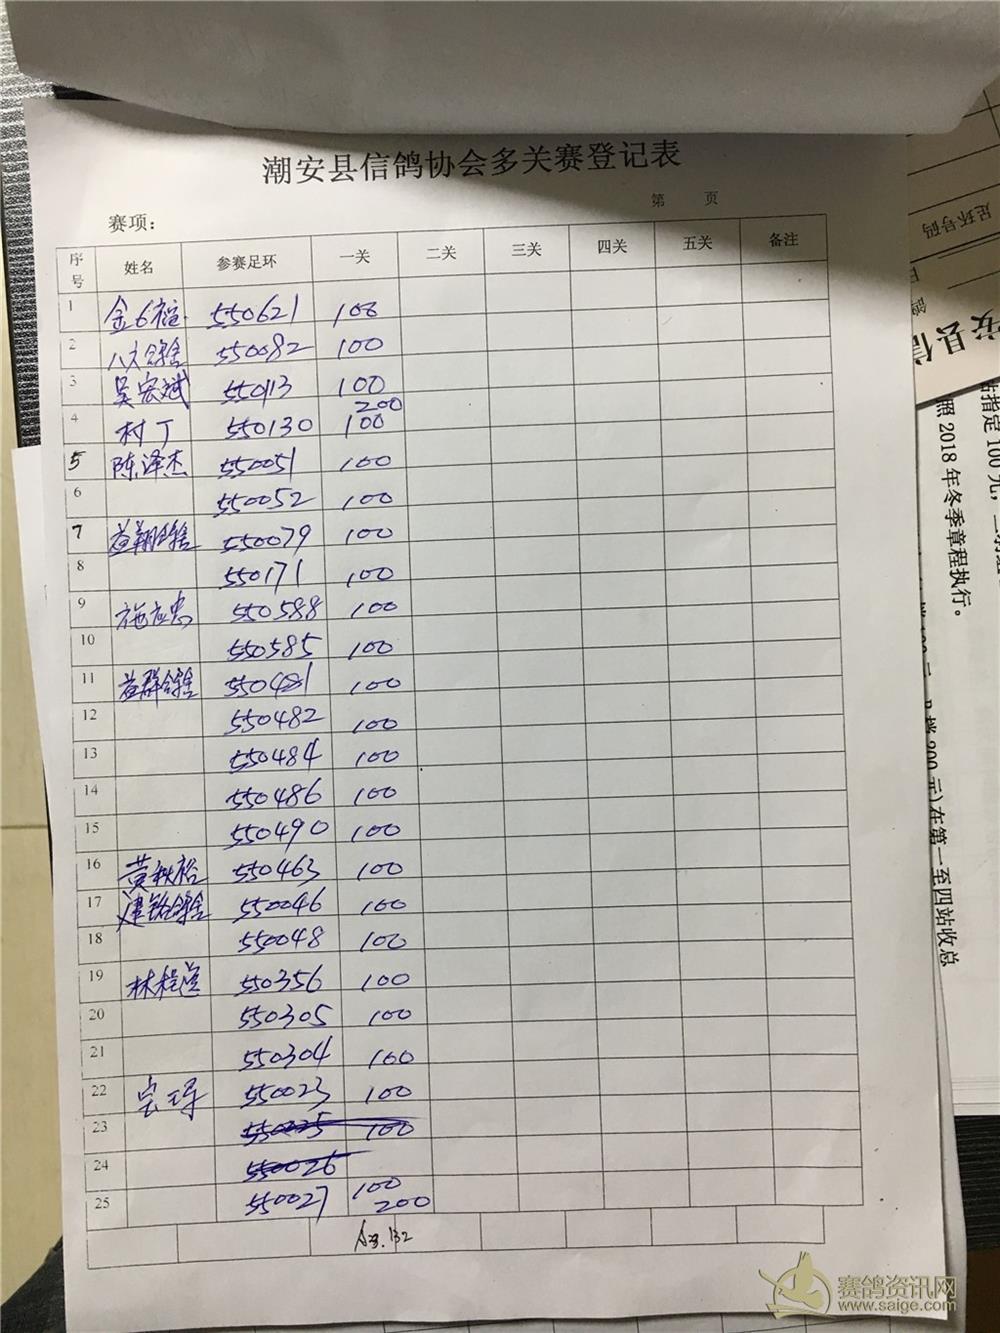 潮安县信鸽协会多关赛登记表
第 页
赛项:
序号 姓名 参赛足环 一关 二关 三关 四关 五关 备注
1 550621 100
2 550082 100
3 吴宏斌 550113 100 200
4 村丁 550130 100
5 陈泽杰 550051 100
6 550052 100
7 益翔鸽舍 550079 100
8 550171 100
9 施应忠 550588 100
10 550585 100
11 益群鸽舍 550481 100
12 550482 100
13 550484 100
14 550486 100
15 550490 100
16 550463 100
17 550046 100
18 550048 100
19 550356 100
20 550305 100
21 550304 100
22 550023 100
23 550025 100
24 550026
25 550027 100 200
足环号码
安县信
站指定100元,
照2018年冬季章程执行。
元)在第一至四站收总
赛鸽资讯网
www.saige.com